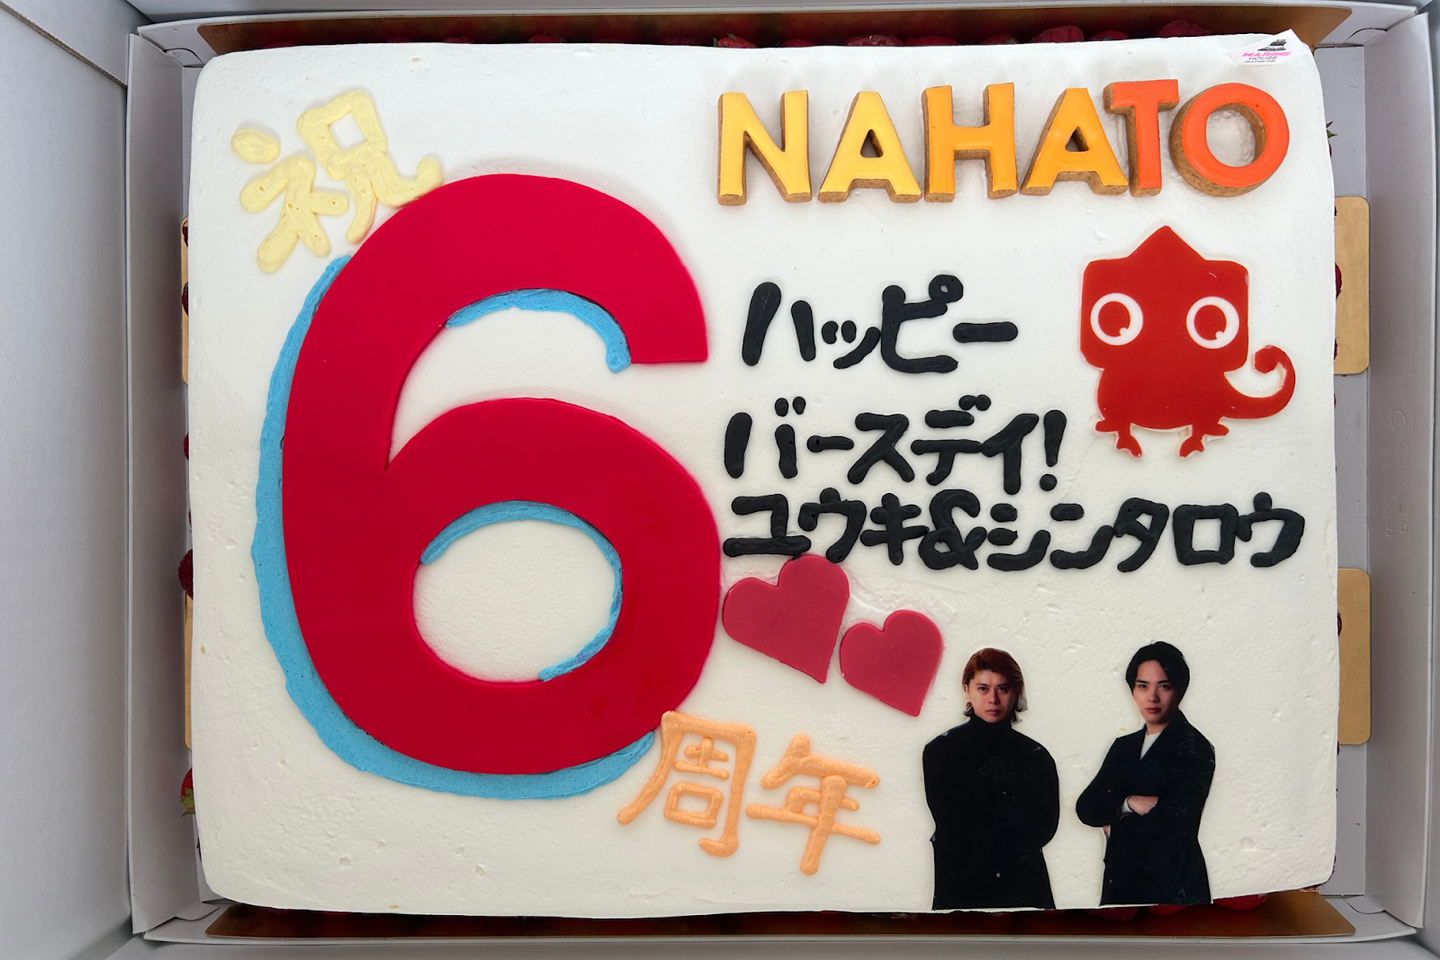 祝
NAHATO
6
ハッピー
バースデイ!
ユウキ&シンタロウ
周年
MARINE
HOUSE